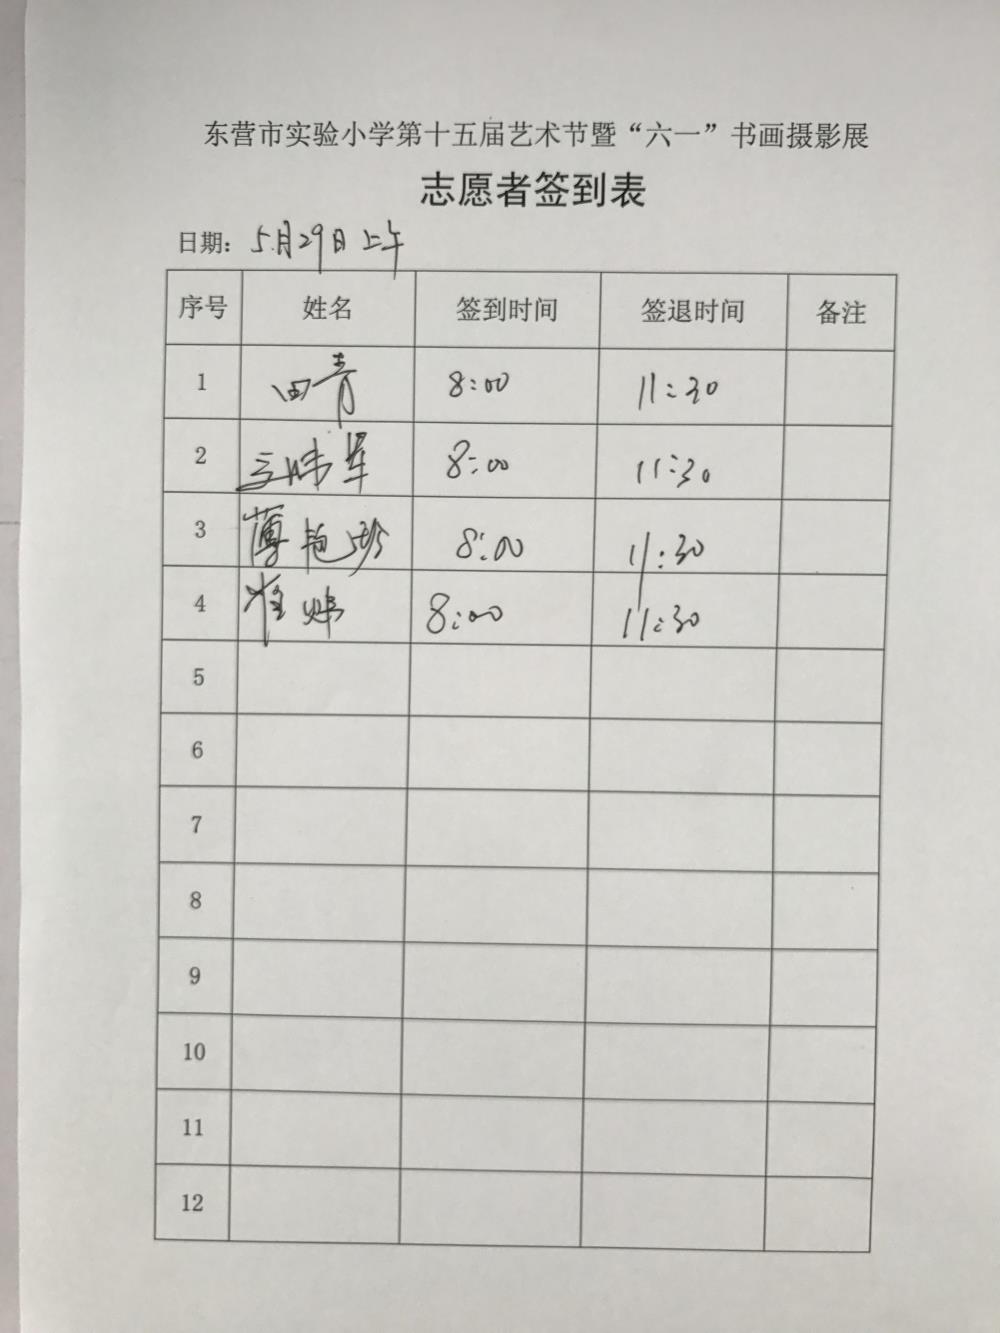 东营市实验小学第十五届艺术节暨“六一”书画摄影展
志愿者签到表
日期: 5月29日上午
序号 姓名 签到时间 签退时间 备注
1 田青 8:00 11:30
2 8:00 11:30
3 薄艳珍 8:00 11:30
4 崔炜 8:00 11:30
5
6
7
8
9
10
11
12